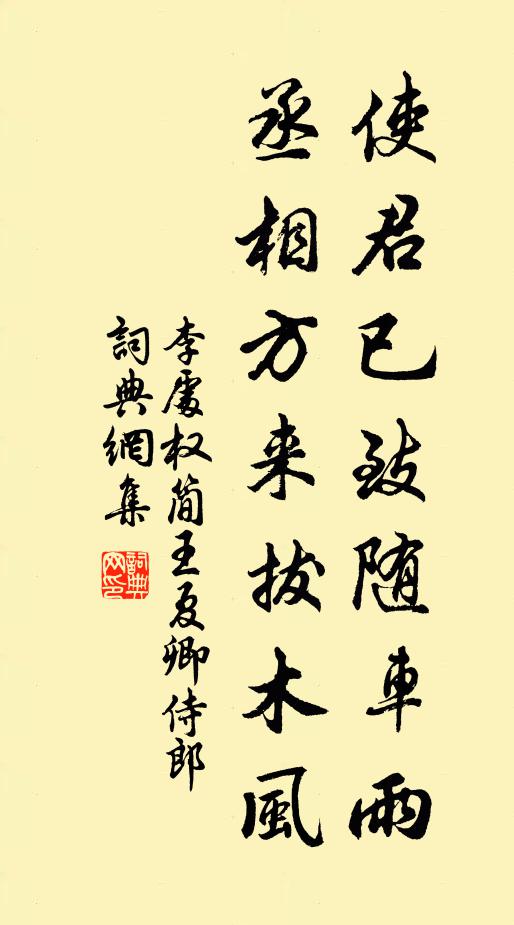 使君已致随車雨
丞相方来拔木風
李處权简王夏卿侍郎
詞典網集
詞典网印